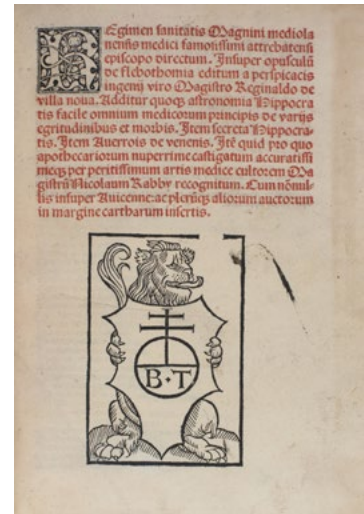 REgimen sanitatis Magnini mediola
nensis medici famosissimi attrebatensi
episcopo directum. Insuper opusculũ
de flebothomia editum a perspicacis
ingenij viro Magistro Reginaldo de
villa noua. Additur quoqȝ astronomia Hippocra
tis facile omnium medicorum principis de varijs
egritudinibus et morbis. Item secreta Hippocra-
tis. Item Auerrois de venenis. Itẽ quid pro quo
apothecariorum nuperrime castigatum accuratissi
meqȝ per peritissimum artis medice cultorem Ma
gistrũ Nicolaum Rabby recognitum. Cum nõnul-
lis insuper Auicenne: ac plerũqȝ aliorum auctorum
in margine cartharum insertis.
B·T